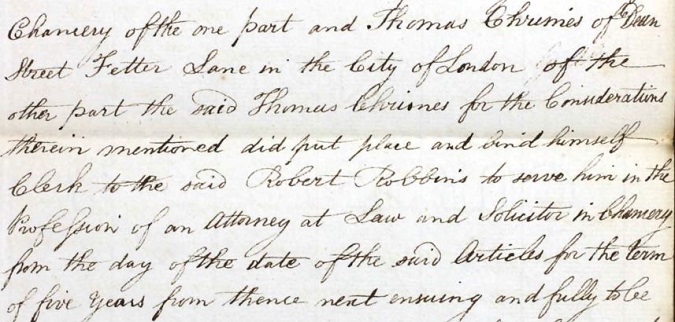 Chancery of the one part and Thomas Chrimes of Dean
Street Fetter Lane in the City of London of the
other part the said Thomas Chrimes for the Considerations
therein mentioned did put place and bind himself
Clerk to the said Robert Robbins to serve him in the
Profession of an Attorney at Law and Solicitor in Chancery
from the day of the date of the said Articles for the term
of five Years from thence next ensuing and fully to be